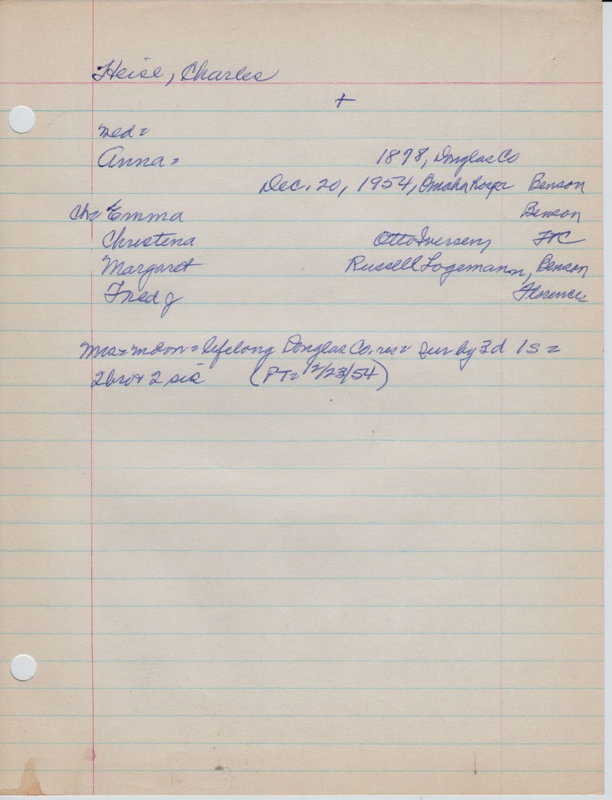 Heise, Charles
+
med =
Anna = 1878, Douglas Co
Dec. 20, 1954, Omaha Hosp Benson
Ch= Emma Benson
Christena Otto Iversen, FC
Margaret Russell Logemann, Benson
Fred J Florence
Mrs = = lifelong Douglas Co. res = sur by 3d 1s =
2bro & 2 sis (PT = 12/23/54)